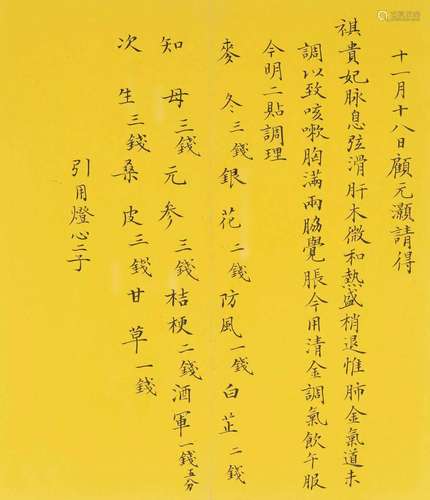 十一月十八日顧元灝請得
祺貴妃脉息弦滑肝木微和熱盛稍退惟肺金氣道未
調以致咳嗽胸滿兩脇覺脹今用清金調氣飲午服
今明二貼調理
麥冬三錢銀花二錢防風一錢白芷二錢
知母三錢元參三錢桔梗二錢酒軍一錢五分
次生三錢桑皮三錢甘草一錢
引用燈心二子